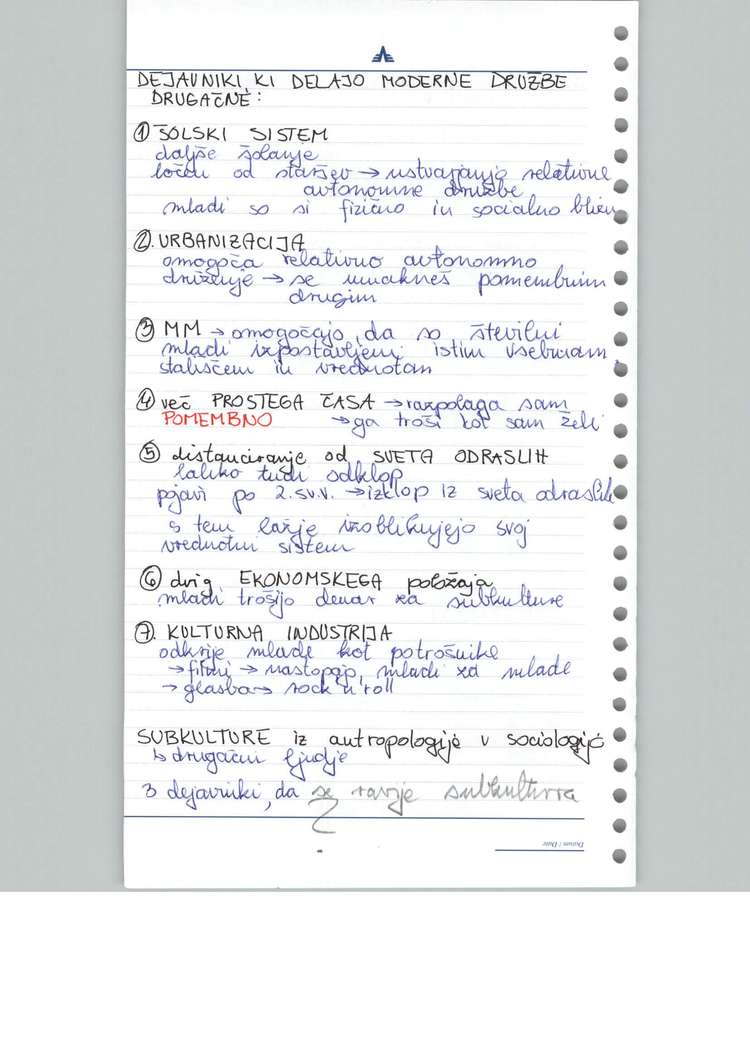 DEJAVNIKI, KI DELAJO MODERNE DRUŽBE
DRUGAČNE:
① ŠOLSKI SISTEM
daljše šolanje
ločeni od staršev → ustvarjanje relativne
avtonomne družbe
mladi so si fizično in socialno blizu
②. URBANIZACIJA
omogoča relativno avtonomno
druženje → se umakneš pomembnim
drugim
③ MM → omogočajo, da so številni
mladi izpostavljeni istim vsebinam,
stališčem in vrednotam
④ več PROSTEGA ČASA → razpolaga sam
POMEMBNO → ga troši kot sam želi
⑤ distanciranje od SVETA ODRASLIH
lahko tudi odklop
pojavi po 2.sv.v. → izklop iz sveta odraslih
s tem lažje izoblikujejo svoj
vrednotni sistem
⑥ dvig EKONOMSKEGA položaja
mladi trošijo denar za subkulture
⑦. KULTURNA INDUSTRIJA
odkrije mlade kot potrošnike
→ filmi → nastopajo mladi za mlade
→ glasba → rock'n'roll
SUBKULTURE iz antropologije v sociologijo
↳ drugačni ljudje
3 dejavniki, da se razvije subkultura
Datum / Date